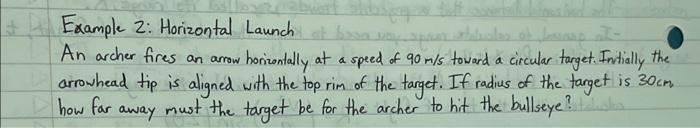 Example 2: Horizontal Launch
An archer fires an arrow horizontally at a speed of 90 m/s toward a circular target. Initially the
arrowhead tip is aligned with the top rim of the target. If radius of the target is 30cm
how far away must the target be for the archer to hit the bullseye?